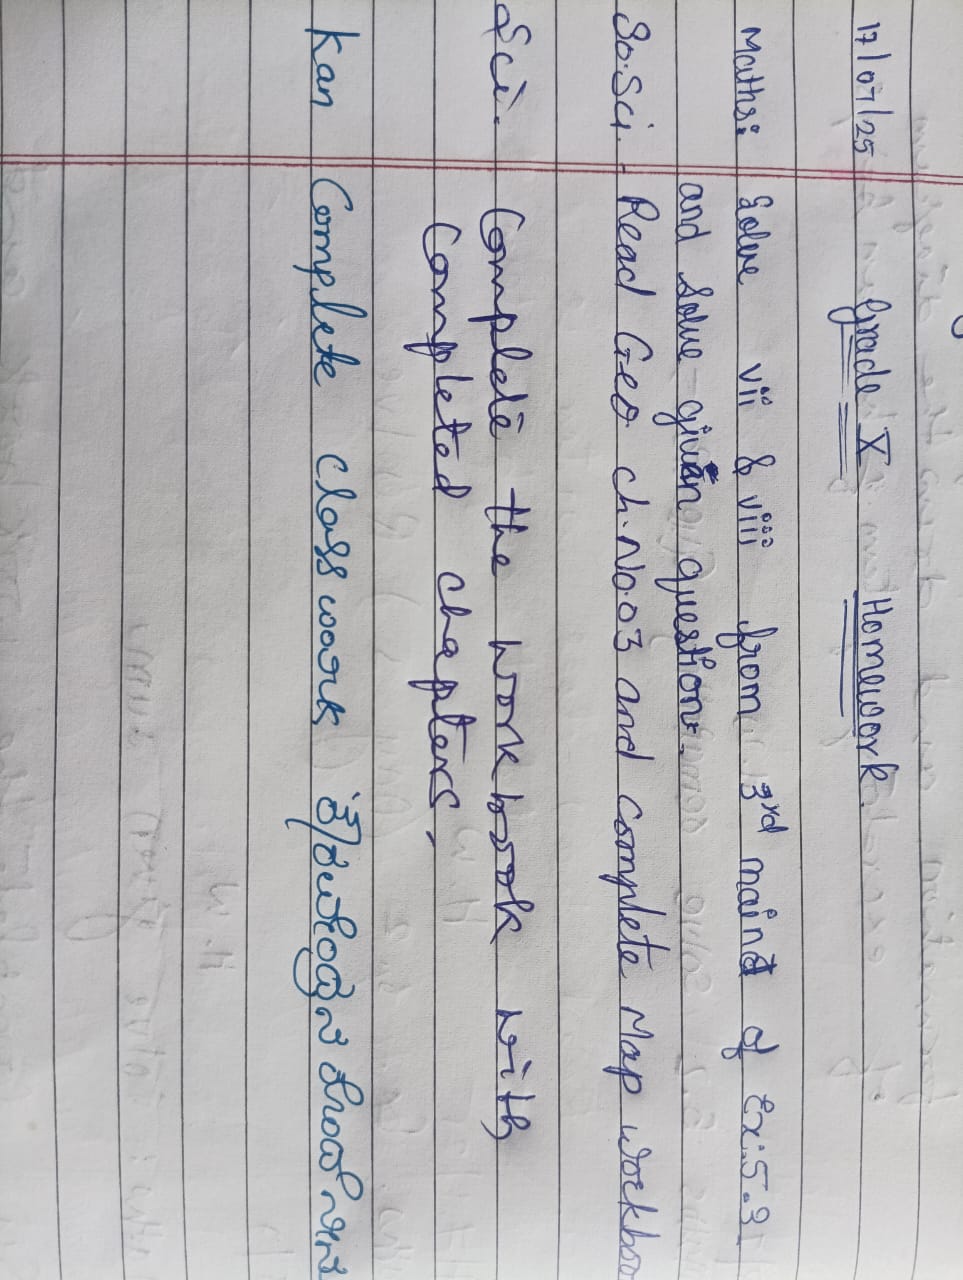 17/07/25 Grade X Homework.
Maths: Solve vii & viii from 3rd maind of Ex:5.3
and Solve given question.
So.Sci.- Read Geo ch.No.03 and complete Map workboo
Sci. Complete the workbook with
Completed chapters.
Kan Complete class work